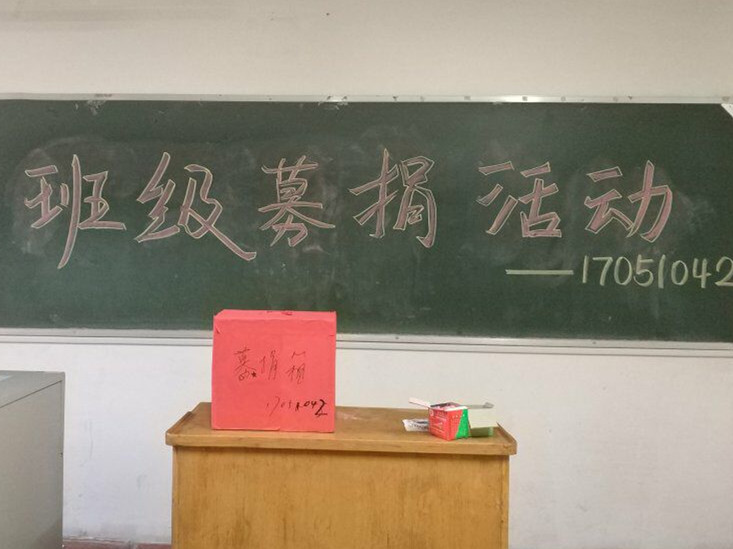 班级募捐活动
——17051042
募捐箱
17051042